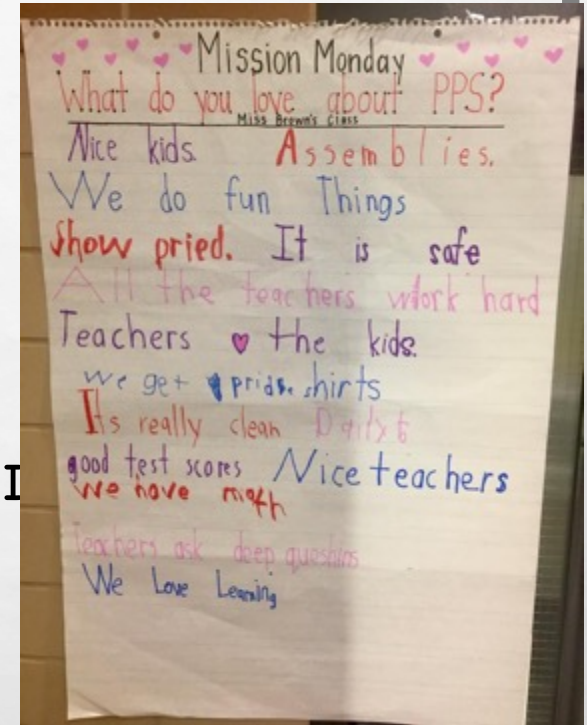 Mission Monday
What do you love about PPS?
Miss Brown's Class
Nice kids. Assemblies.
We do fun Things
Show pried. It is safe
All the teachers work hard
Teachers the kids.
we get pride shirts
Its really clean
good test scores Nice teachers
We have math
Teachers ask deep queshins
We Love Learning
I